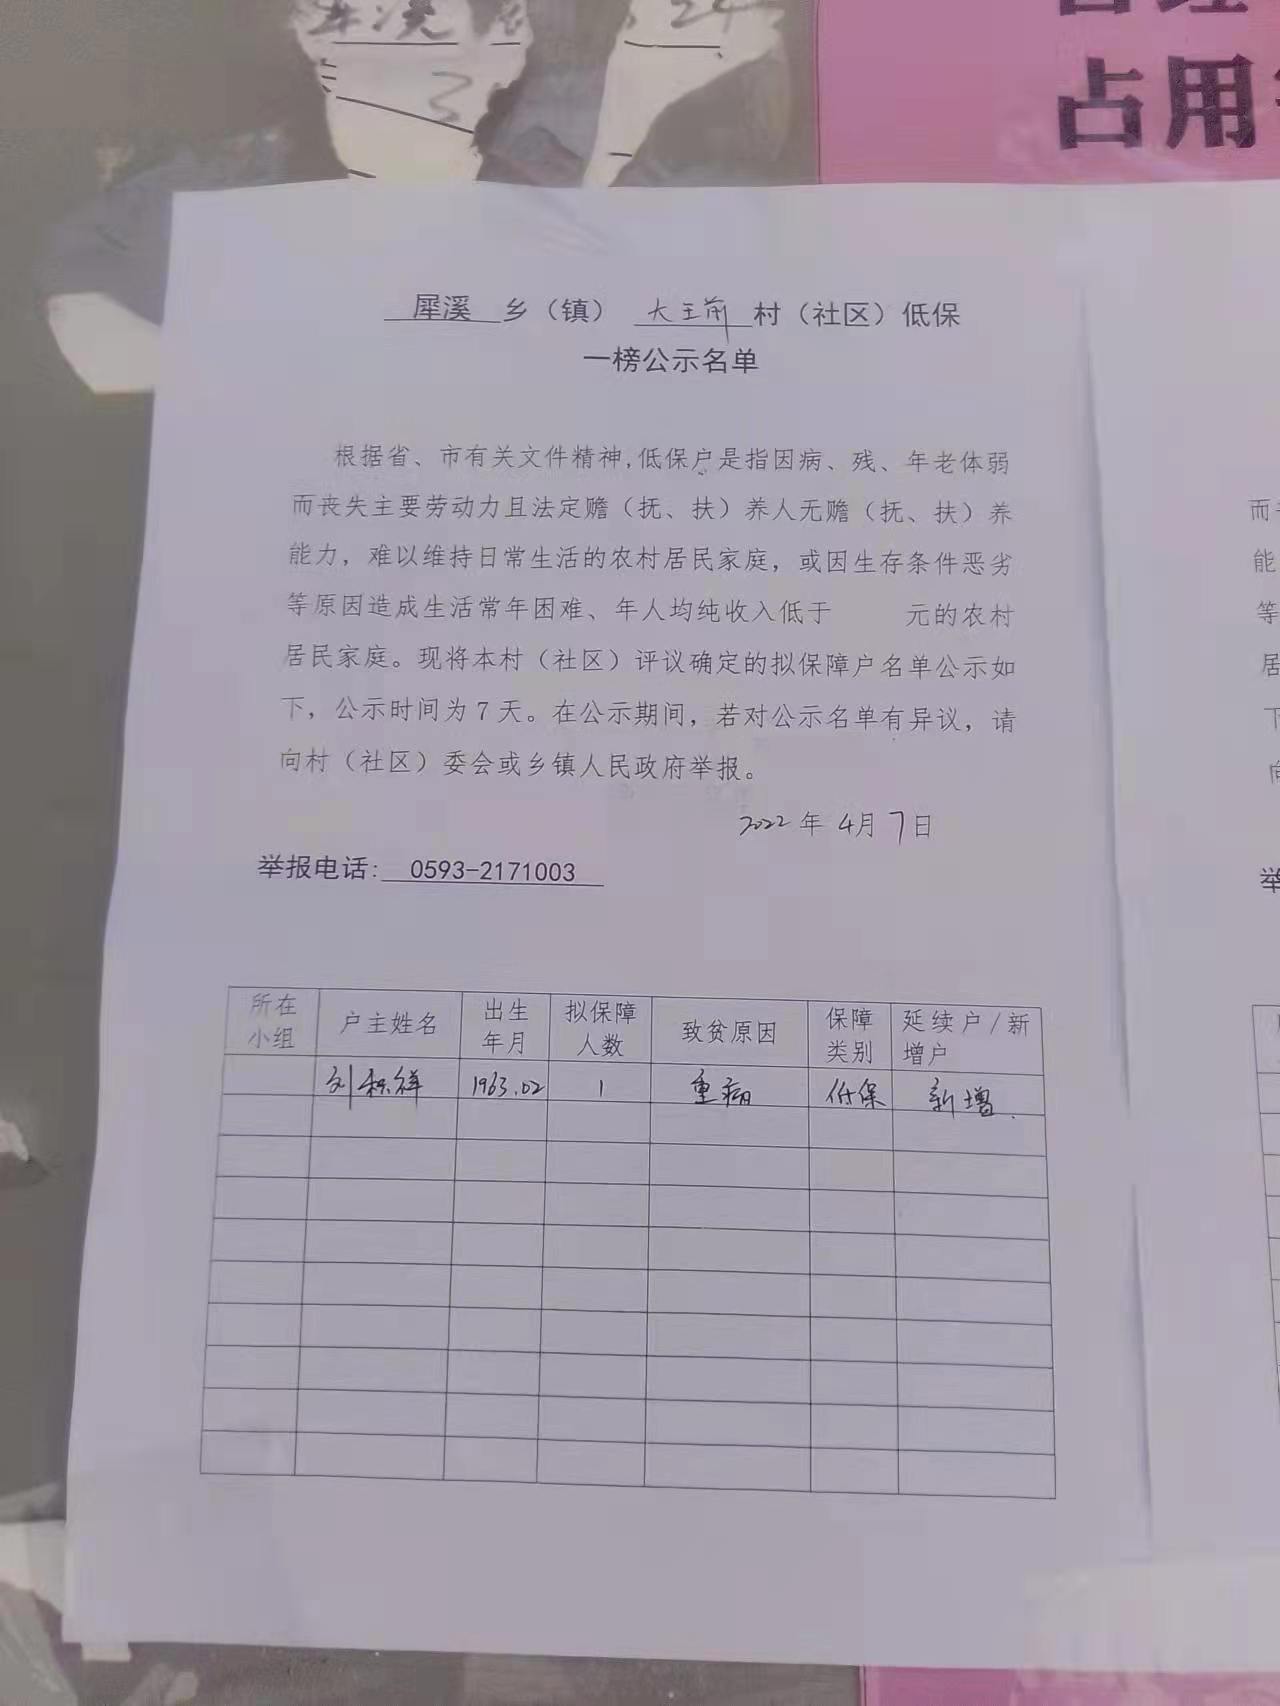 犀溪
占用
犀溪乡（镇）大王前村（社区）低保
一榜公示名单
根据省、市有关文件精神,低保户是指因病、残、年老体弱
而丧失主要劳动力且法定赡（抚、扶）养人无赡（抚、扶）养
能力，难以维持日常生活的农村居民家庭，或因生存条件恶劣
等原因造成生活常年困难、年人均纯收入低于 元的农村
居民家庭。现将本村（社区）评议确定的拟保障户名单公示如
下，公示时间为7天。在公示期间，若对公示名单有异议，请
向村（社区）委会或乡镇人民政府举报。
2022年4月7日
举报电话: 0593-2171003
所在小组 户主姓名 出生年月 拟保障人数 致贫原因 保障类别 延续户/新增户
刘 祥 1963.02 1 重病 低保 新增
而
能
等
居
下
向
举